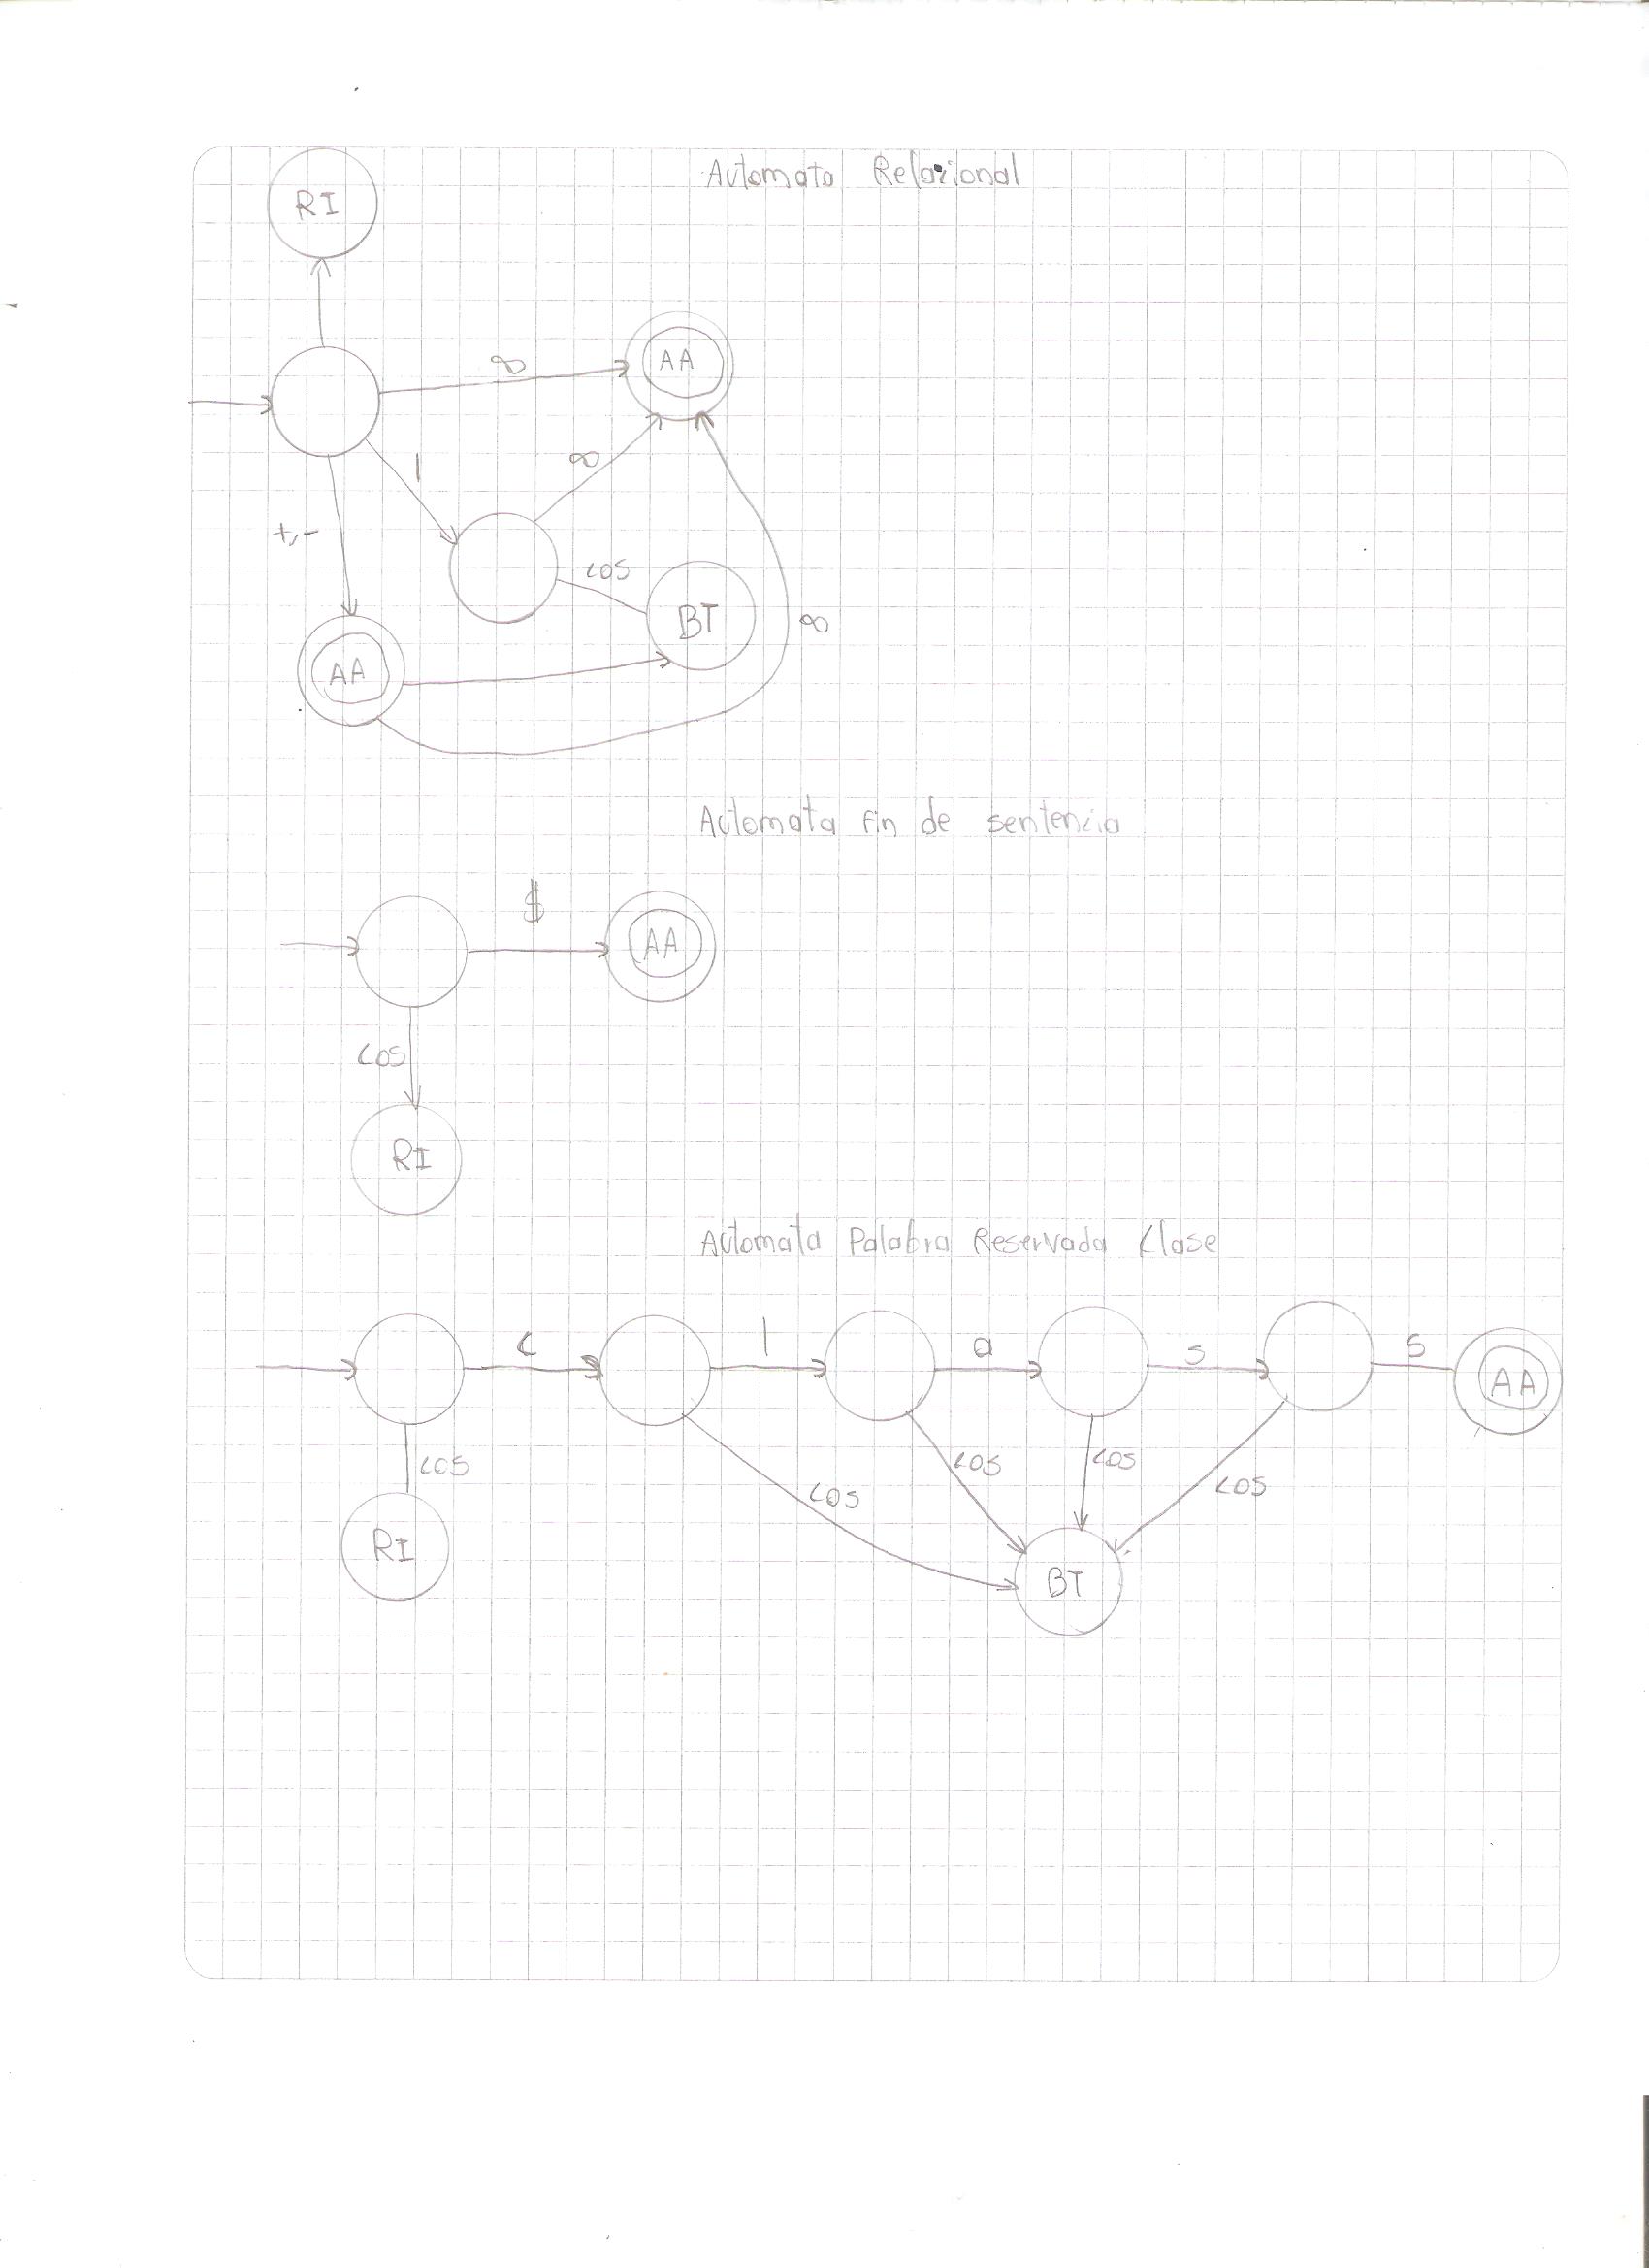 Automata Relacional
RI
∞
AA
|
∞
+,-
cos
BT
∞
AA
Automata Fin de sentencia
$
AA
cos
RI
Automata Palabra Reservada Clase
c
l
a
s
s
AA
cos
cos
cos
cos
cos
RI
BT